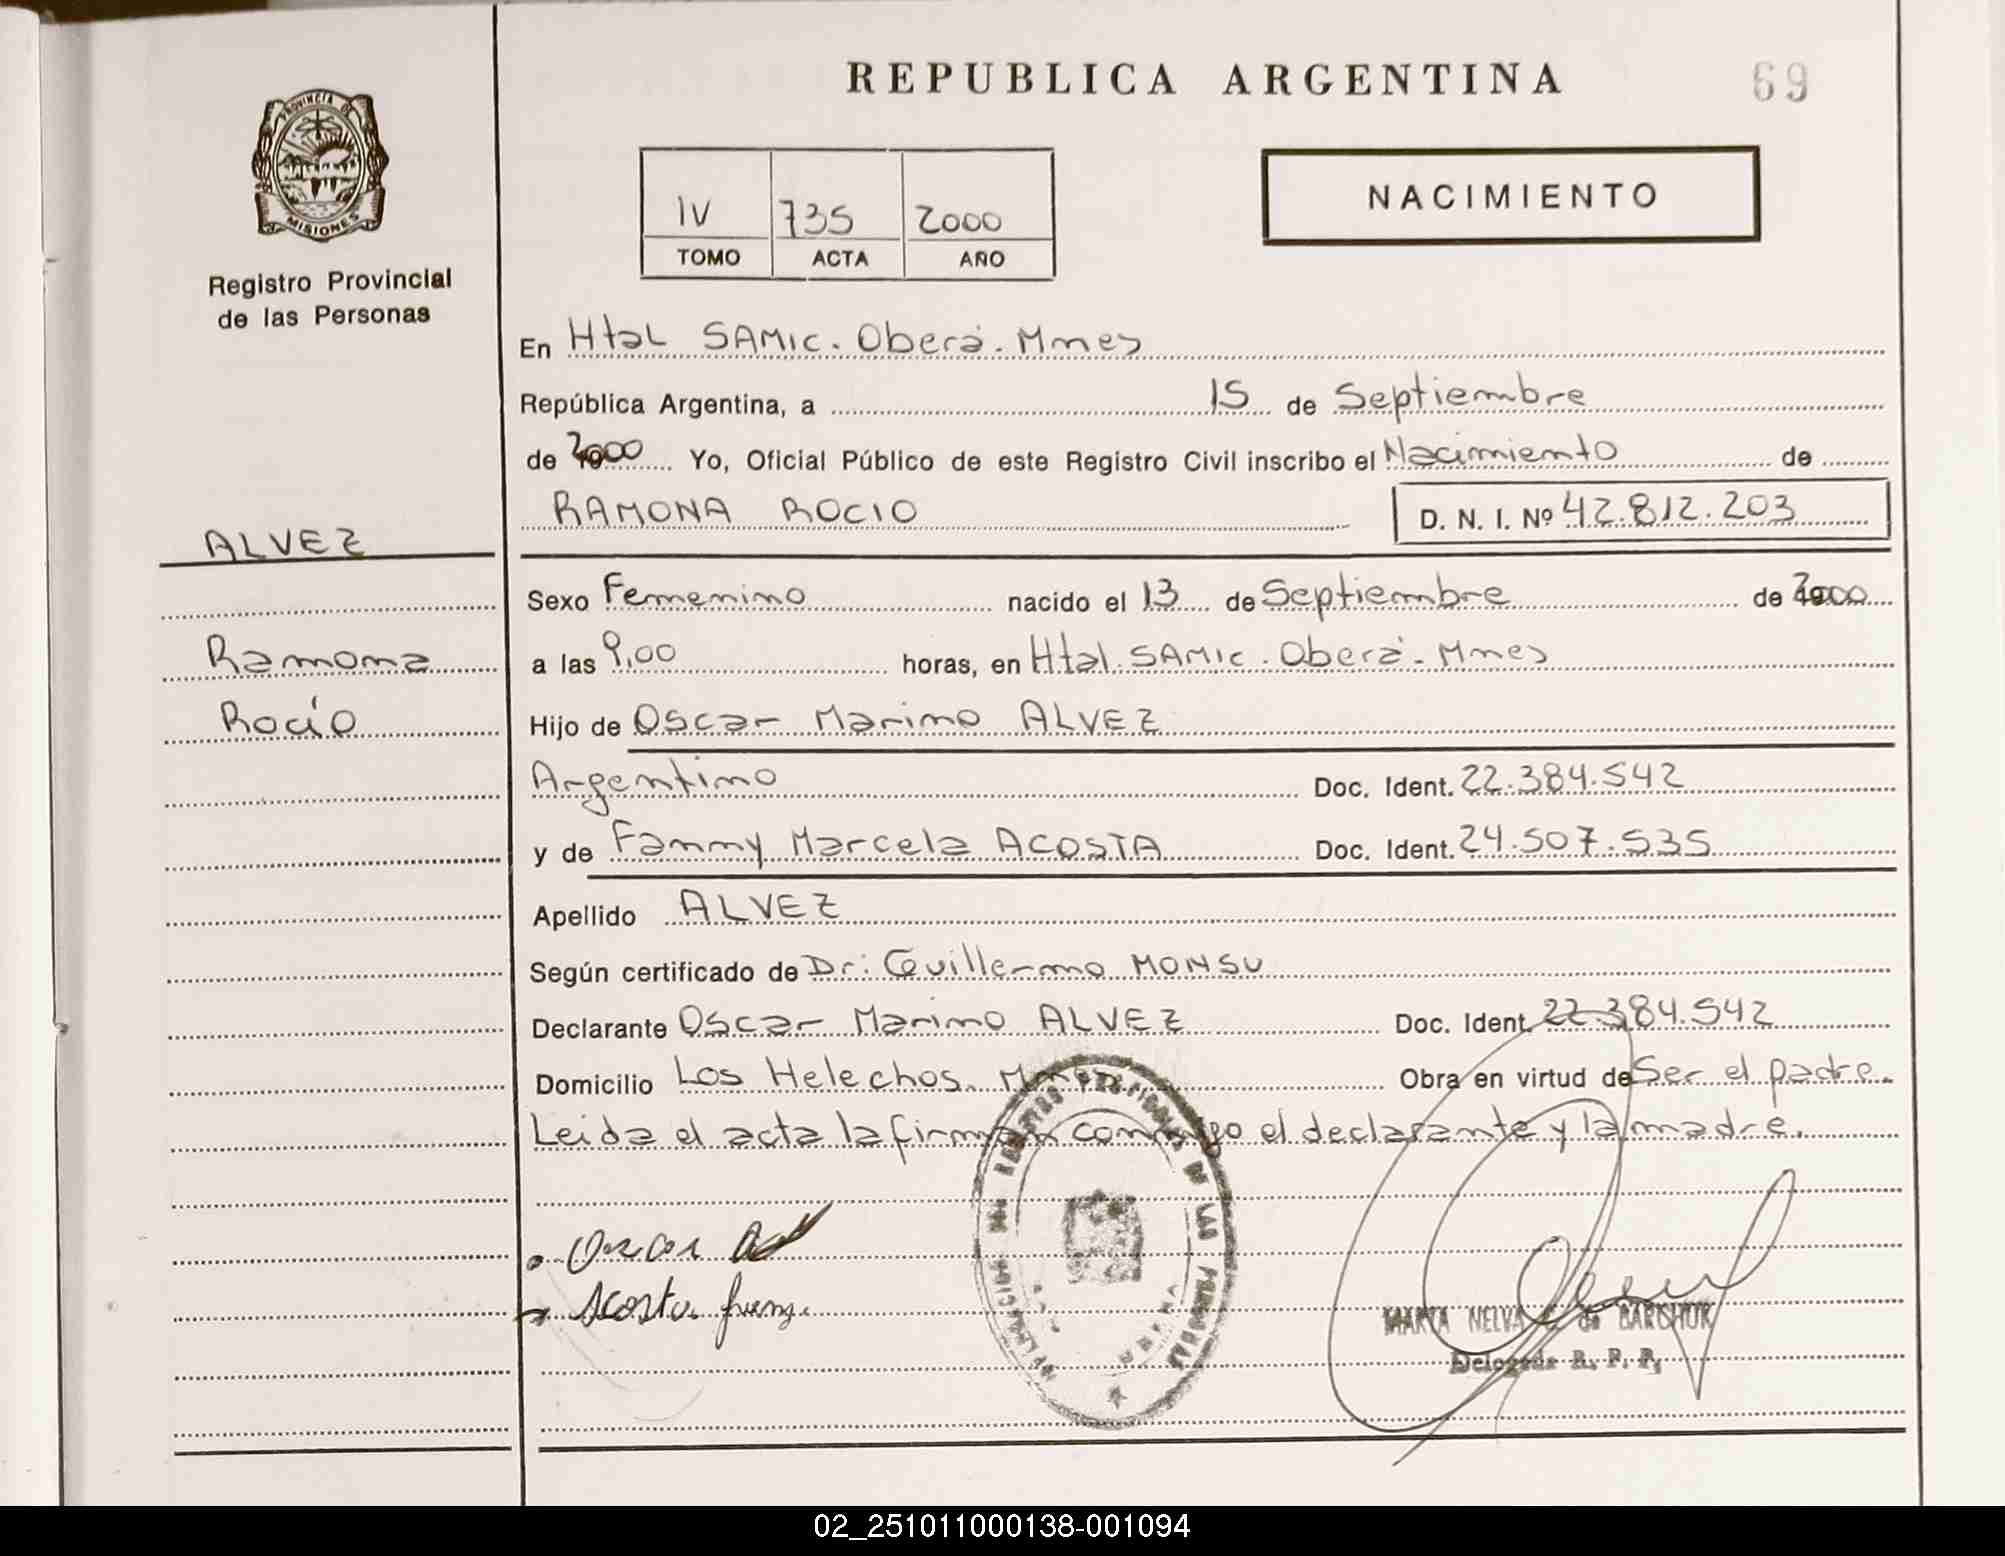 REPUBLICA ARGENTINA
69
PROVINCIA DE MISIONES
Registro Provincial
de las Personas
IV 735 2000
TOMO ACTA AÑO
NACIMIENTO
En Htal SAMIC. Oberá. Mnes
República Argentina, a 15 de Septiembre
de 2000 Yo, Oficial Público de este Registro Civil inscribo el Nacimiento de
RAMONA ROCIO D. N. I. Nº 42.812.203
ALVEZ
Ramona
Rocío
Sexo Femenino nacido el 13 de Septiembre de 2000
a las 9,00 horas, en Htal. SAMIC. Oberá. Mnes
Hijo de Oscar Marino ALVEZ
Argentino Doc. Ident. 22.384.542
y de Fanny Marcela ACOSTA Doc. Ident. 24.507.535
Apellido ALVEZ
Según certificado de Dr: Guillermo MONSU
Declarante Oscar Marino ALVEZ Doc. Ident. 22.384.542
Domicilio Los Helechos. Mnes Obra en virtud de Ser el padre.
Leida el acta la firman conmigo el declarante y la madre.
Oscar
Acosta
MARTA NELVA de BARCHUK
Delegada R. P. P.
DE LAS PERSONAS
02_251011000138-001094